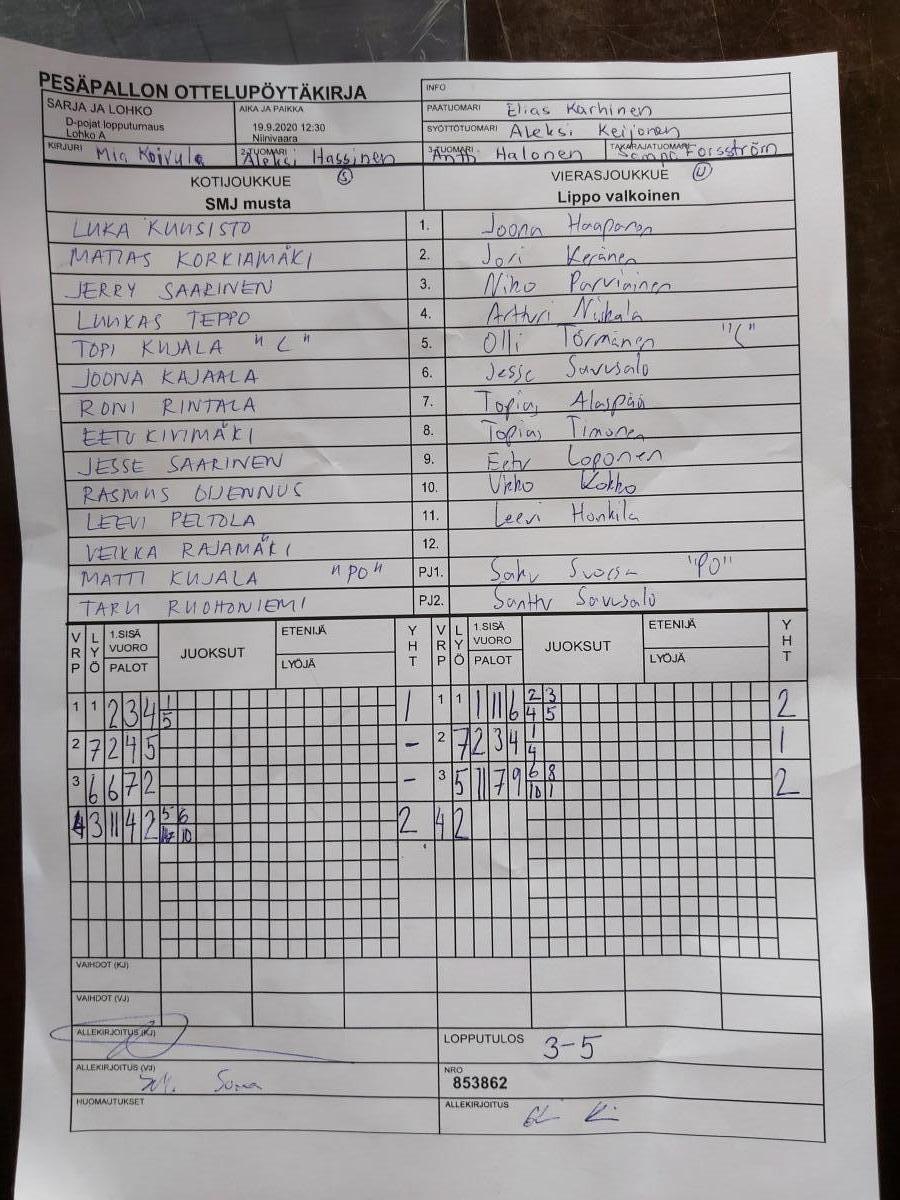 PESÄPALLON OTTELUPÖYTÄKIRJA
INFO
SARJA JA LOHKO
D-pojat lopputurnaus
Lohko A
AIKA JA PAIKKA
19.9.2020 12:30
Niinivaara
PÄÄTUOMARI Elias Karhinen
SYÖTTÖTUOMARI Aleksi Keijonen
KIRJURI Mia Koivula
2-TUOMARI Aleksi Hassinen
3-TUOMARI Antti Halonen
TAKARAJATUOMARI Sampo Forsström
KOTIJOUKKUE S
SMJ musta
VIERASJOUKKUE U
Lippo valkoinen
LUKA KUUSISTO 1. Joona Haaparan
MATIAS KORKIAMÄKI 2. Jori Keränen
JERRY SAARINEN 3. Niko Parviainen
LUUKAS TEPPO 4. Artturi Niskala
TOPI KUJALA "C" 5. Olli Törmänen "C"
JOONA KAJAALA 6. Jesse Savusalo
RONI RINTALA 7. Topias Alaspää
EETU KIVIMÄKI 8. Topias Timonen
JESSE SAARINEN 9. Eetu Loponen
RASMUS OJENNUS 10. Ukko Kokko
LEEVI PELTOLA 11. Leevi Honkila
VEIKKA RAJAMÄKI 12.
MATTI KUJALA "PO" PJ1. Saku "PO"
TARU RUOHONIEMI PJ2. Santtu Savusalo
VRP LYÖ 1.SISÄ VUORO PALOT JUOKSUT ETENIJÄ LYÖJÄ YHT VRP LYÖ 1.SISÄ VUORO PALOT JUOKSUT ETENIJÄ LYÖJÄ YHT
1 1 2 3 4 1 5 1 1 1 1 11 6 2 3 4 5 2
2 7 2 4 5 - 2 7 2 3 4 1 4 1
3 6 6 7 2 - 3 5 11 7 9 6 8 10 1 2
4 3 11 4 2 5 6 10 2 4 2
VAIHDOT (KJ)
VAIHDOT (VJ)
ALLEKIRJOITUS (KJ)
LOPPUTULOS 3-5
ALLEKIRJOITUS (VJ)
NRO
853862
HUOMAUTUKSET
ALLEKIRJOITUS